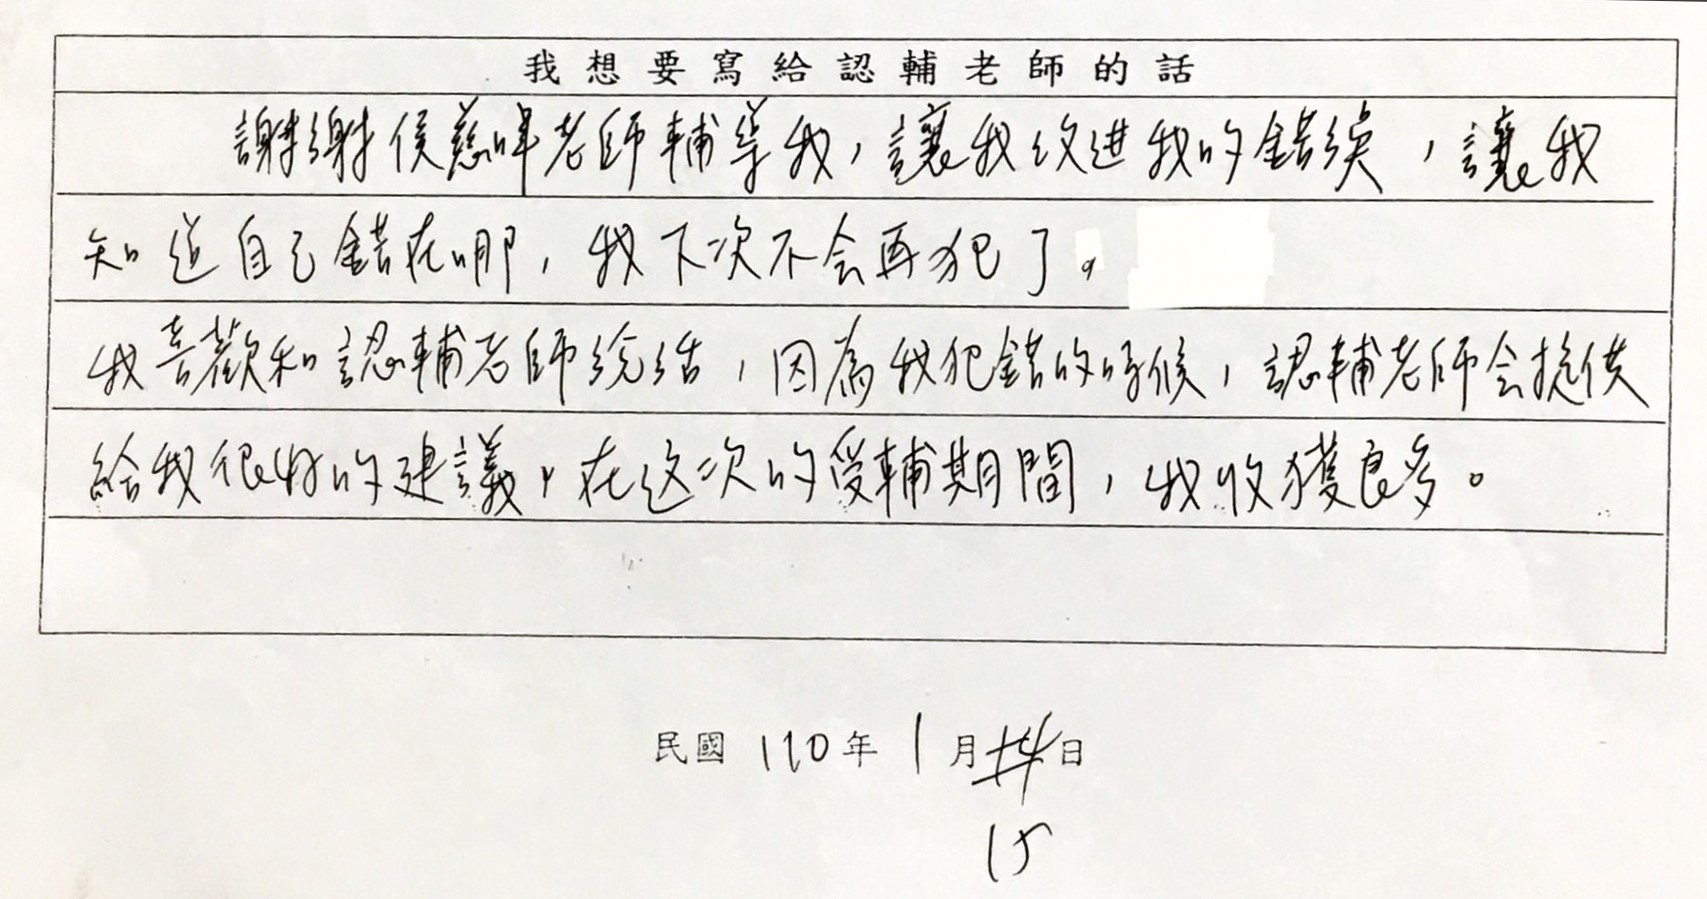 我想要寫給認輔老師的話
謝謝侯慈暉老師輔導我，讓我改进我的錯誤，讓我
知道自己錯在哪，我下次不会再犯了。
我喜歡和認輔老師說話，因為我犯錯的时候，認輔老師会提供
給我很好的建議，在这次的受輔期間，我收獲良多。
民國110年1月14日
15